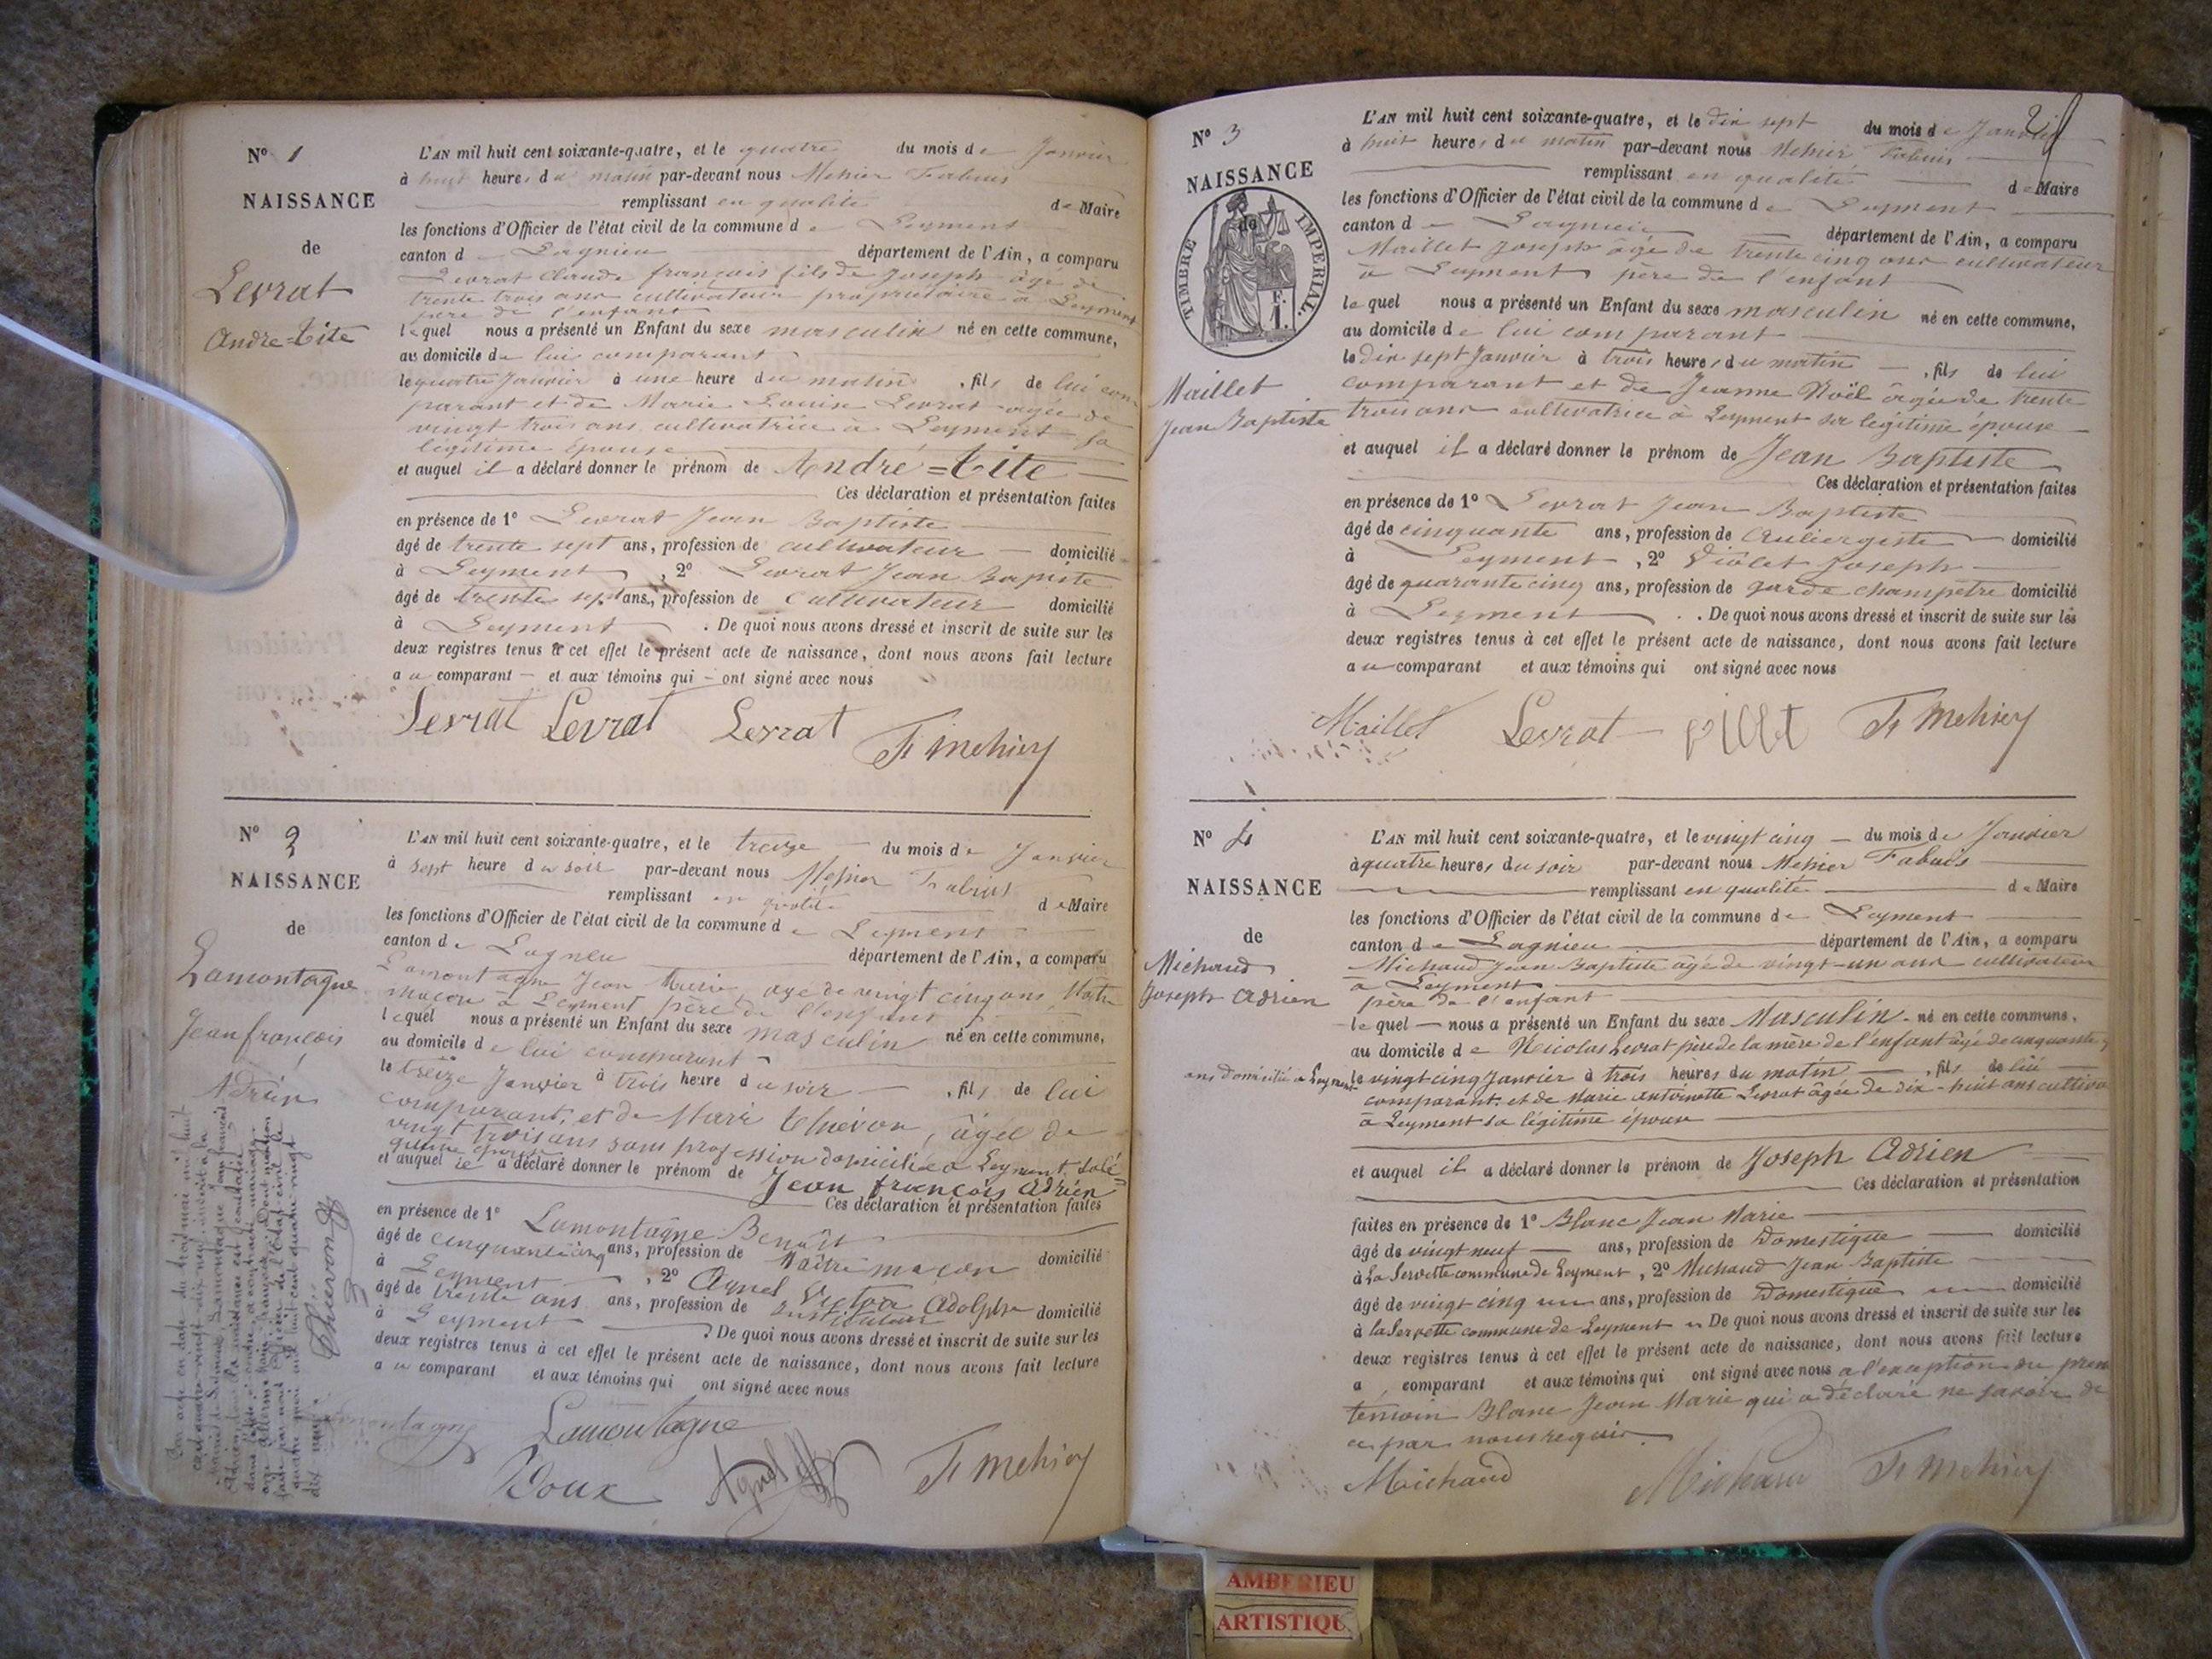 N° 1
NAISSANCE
de
Levrat
André=tite
L'AN mil huit cent soixante-quatre, et le quatre du mois de Janvier
à huit heures du matin par-devant nous Mehier Fabius
remplissant en qualité de Maire
les fonctions d'Officier de l'état civil de la commune de Leyment
canton de Lagnieu département de l'Ain, a comparu
Levrat Claude françois fils de Joseph âgé de
trente trois ans cultivateur propriétaire à Leyment
père de l'enfant
lequel nous a présenté un Enfant du sexe masculin né en cette commune,
au domicile de lui comparant
le quatre Janvier à une heure du matin, fils de lui com
parant et de Marie Louise Levrat âgée de
vingt trois ans cultivatrice à Leyment sa
légitime épouse
et auquel il a déclaré donner le prénom de André=tite
Ces déclaration et présentation faites
en présence de 1° Levrat Jean Baptiste
âgé de trente sept ans, profession de cultivateur domicilié
à Leyment, 2° Levrat Jean Bapiste
âgé de trente sept ans, profession de cultivateur domicilié
à Leyment. De quoi nous avons dressé et inscrit de suite sur les
deux registres tenus à cet effet le présent acte de naissance, dont nous avons fait lecture
au comparant et aux témoins qui ont signé avec nous
Levrat Levrat Levrat F. Mehier
N° 2
NAISSANCE
de
Lamontagne
Jean françois
Adrien
L'AN mil huit cent soixante-quatre, et le treize du mois de Janvier
à sept heure du soir par-devant nous Mehier Fabius
remplissant en qualité de Maire
les fonctions d'Officier de l'état civil de la commune de Leyment
canton de Lagneu département de l'Ain, a comparu
Lamontagne Jean Marie, âgé de vingt cinq ans, Maître
maçon à Leyment père de l'enfant
lequel nous a présenté un Enfant du sexe masculin né en cette commune,
au domicile de lui comparant
le treize Janvier à trois heure du soir, fils de lui
comparant, et de Marie Thévon, âgée de
vingt trois ans sans profession domiciliée à Leyment, sa lé=
gitime épouse
et auquel il a déclaré donner le prénom de Jean françois Adrien
Ces déclaration et présentation faites
en présence de 1° Lamontagne Benoît
âgé de cinquante cinq ans, profession de Maître maçon domicilié
à Leyment, 2° Agnel Victor Adolphe
âgé de trente ans ans, profession de Instituteur domicilié
à Leyment. De quoi nous avons dressé et inscrit de suite sur les
deux registres tenus à cet effet le présent acte de naissance, dont nous avons fait lecture
au comparant et aux témoins qui ont signé avec nous
Lamontagne Lamontagne
Doux Agnel F. Mehier
N° 3
NAISSANCE
de
TIMBRE IMPÉRIAL
F. 1.
Maillet
Jean Baptiste
L'AN mil huit cent soixante-quatre, et le dix sept du mois de Janvier
à huit heures du matin par-devant nous Mehier Fabius
remplissant en qualité de Maire
les fonctions d'Officier de l'état civil de la commune de Leyment
canton de Lagnieu département de l'Ain, a comparu
Maillet Joseph âgé de trente cinq ans cultivateur
à Leyment père de l'enfant
lequel nous a présenté un Enfant du sexe masculin né en cette commune,
au domicile de lui comparant
le dix sept Janvier à trois heures du matin, fils de lui
comparant et de Jeanne Noël âgée de trente
trois ans cultivatrice à Leyment sa légitime épouse
et auquel il a déclaré donner le prénom de Jean Baptiste
Ces déclaration et présentation faites
en présence de 1° Levrat Jean Baptiste
âgé de cinquante ans, profession de Aubergiste domicilié
à Leyment, 2° Violet Joseph
âgé de quarante cinq ans, profession de garde champêtre domicilié
à Leyment. De quoi nous avons dressé et inscrit de suite sur les
deux registres tenus à cet effet le présent acte de naissance, dont nous avons fait lecture
au comparant et aux témoins qui ont signé avec nous
Maillet Levrat F. Mehier
N° 4
NAISSANCE
de
Michaud
Joseph Adrien
L'AN mil huit cent soixante-quatre, et le vingt cinq du mois de Janvier
à quatre heures du soir par-devant nous Mehier Fabius
remplissant en qualité de Maire
les fonctions d'Officier de l'état civil de la commune de Leyment
canton de Lagnieu département de l'Ain, a comparu
Michaud Jean Baptiste âgé de vingt-un ans cultivateur
à Leyment
père de l'enfant
lequel nous a présenté un Enfant du sexe Masculin né en cette commune,
au domicile de Nicolas Levrat père de la mère de l'enfant âgé de cinquante
ans domicilié à Leyment le vingt cinq Janvier à trois heures du matin, fils de lui
comparant et de Marie Antoinette Levrat âgée de dix-huit ans cultiva
à Leyment sa légitime épouse
et auquel il a déclaré donner le prénom de Joseph Adrien
Ces déclaration et présentation
faites en présence de 1° Blanc Jean Marie
âgé de vingt neuf ans, profession de Domestique domicilié
à La Servette commune de Leyment, 2° Michaud Jean Baptiste
âgé de vingt cinq ans, profession de Domestique domicilié
à la Servette commune de Leyment De quoi nous avons dressé et inscrit de suite sur les
deux registres tenus à cet effet le présent acte de naissance, dont nous avons fait lecture
a comparant et aux témoins qui ont signé avec nous à l'exception du prem
témoin Blanc Jean Marie qui a déclaré ne savoir de
ce par nous requis
Michaud Michaud F. Mehier
AMBERIEU
ARTISTIQU